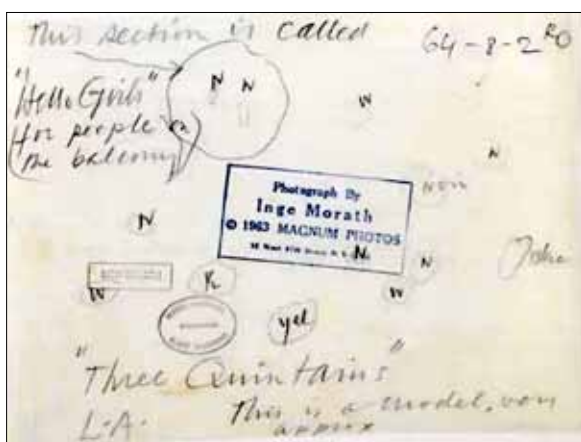 This section is called
64-8-2 RO
"Hello Girls"
for people on
the balcony
N N
W
N
Non
N
Photograph By
Inge Morath
© 1963 MAGNUM PHOTOS
N
N
W
R
W
yel
"Three Quintains"
L.A.
This is a model,
approx